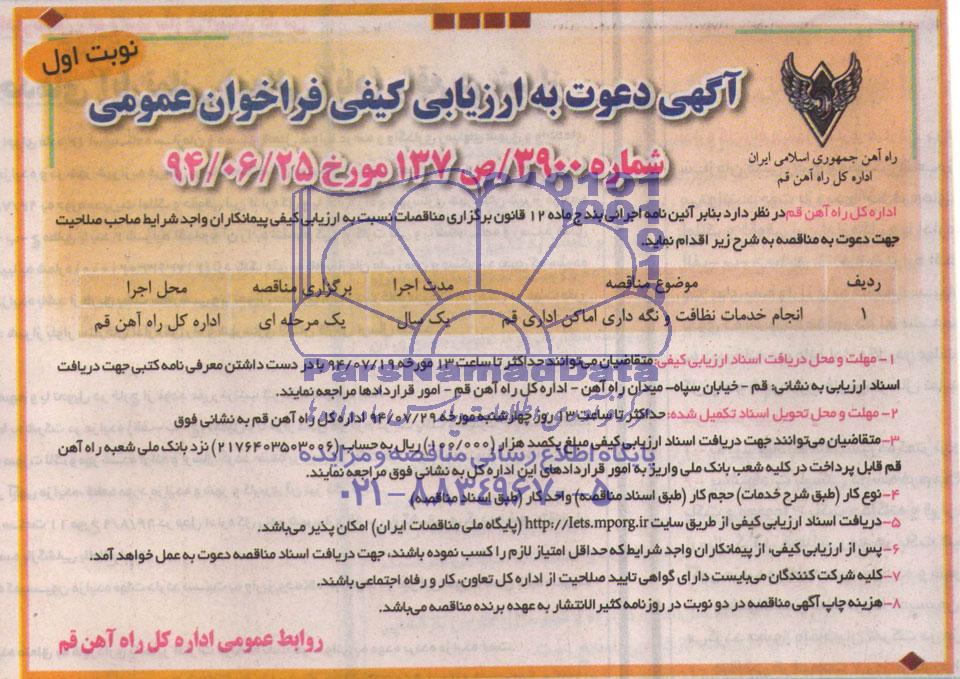 نوبت اول
آگهی دعوت به ارزیابی کیفی فراخوان عمومی
شماره ۳۹۰۰/ص ۱۳۷ مورخ ۹۴/۰۶/۲۵
راه آهن جمهوری اسلامی ایران
اداره کل راه آهن قم
اداره کل راه آهن قم در نظر دارد بنابر آئین نامه اجرائی بند ج ماده ۱۲ قانون برگزاری مناقصات نسبت به ارزیابی کیفی پیمانکاران واجد شرایط صاحب صلاحیت
جهت دعوت به مناقصه به شرح زیر اقدام نماید.
ردیف موضوع مناقصه مدت اجرا برگزاری مناقصه محل اجرا
۱ انجام خدمات نظافت و نگه داری اماکن اداری قم یک سال یک مرحله ای اداره کل راه آهن قم
۱- مهلت و محل دریافت اسناد ارزیابی کیفی: متقاضیان می‌توانند حداکثر تا ساعت ۱۳ مورخه ۹۴/۰۷/۱۹ با در دست داشتن معرفی نامه کتبی جهت دریافت
اسناد ارزیابی به نشانی: قم - خیابان سپاه - میدان راه آهن - اداره کل راه آهن قم - امور قراردادها مراجعه نمایند.
۲- مهلت و محل تحویل اسناد تکمیل شده: حداکثر تا ساعت ۱۳ روز چهارشنبه مورخه ۹۴/۰۷/۲۹ اداره کل راه آهن قم به نشانی فوق
۳- متقاضیان می‌توانند جهت دریافت اسناد ارزیابی کیفی مبلغ یکصد هزار (۱۰۰/۰۰۰) ریال به حساب (۲۱۷۶۴۰۳۵۰۳۰۰۶) نزد بانک ملی شعبه راه آهن
قم قابل پرداخت در کلیه شعب بانک ملی واریز به امور قراردادهای این اداره کل به نشانی فوق مراجعه نمایند.
۴- نوع کار (طبق شرح خدمات) حجم کار (طبق اسناد مناقصه) واحد کار (طبق اسناد مناقصه)
۵- دریافت اسناد ارزیابی کیفی از طریق سایت http://Iets.mporg.ir (پایگاه ملی مناقصات ایران) امکان پذیر می‌باشد.
۶- پس از ارزیابی کیفی، از پیمانکاران واجد شرایط که حداقل امتیاز لازم را کسب نموده باشند، جهت دریافت اسناد مناقصه دعوت به عمل خواهد آمد.
۷- کلیه شرکت کنندگان می‌بایست دارای گواهی تایید صلاحیت از اداره کل تعاون، کار و رفاه اجتماعی باشند.
۸- هزینه چاپ آگهی مناقصه در دو نوبت در روزنامه کثیر الانتشار به عهده برنده مناقصه می‌باشد.
روابط عمومی اداره کل راه آهن قم
ParsNamadData
پایگاه اطلاع رسانی مناقصه و مزایده
۰۲۱-۸۸۳۴۹۶۷۰-۵